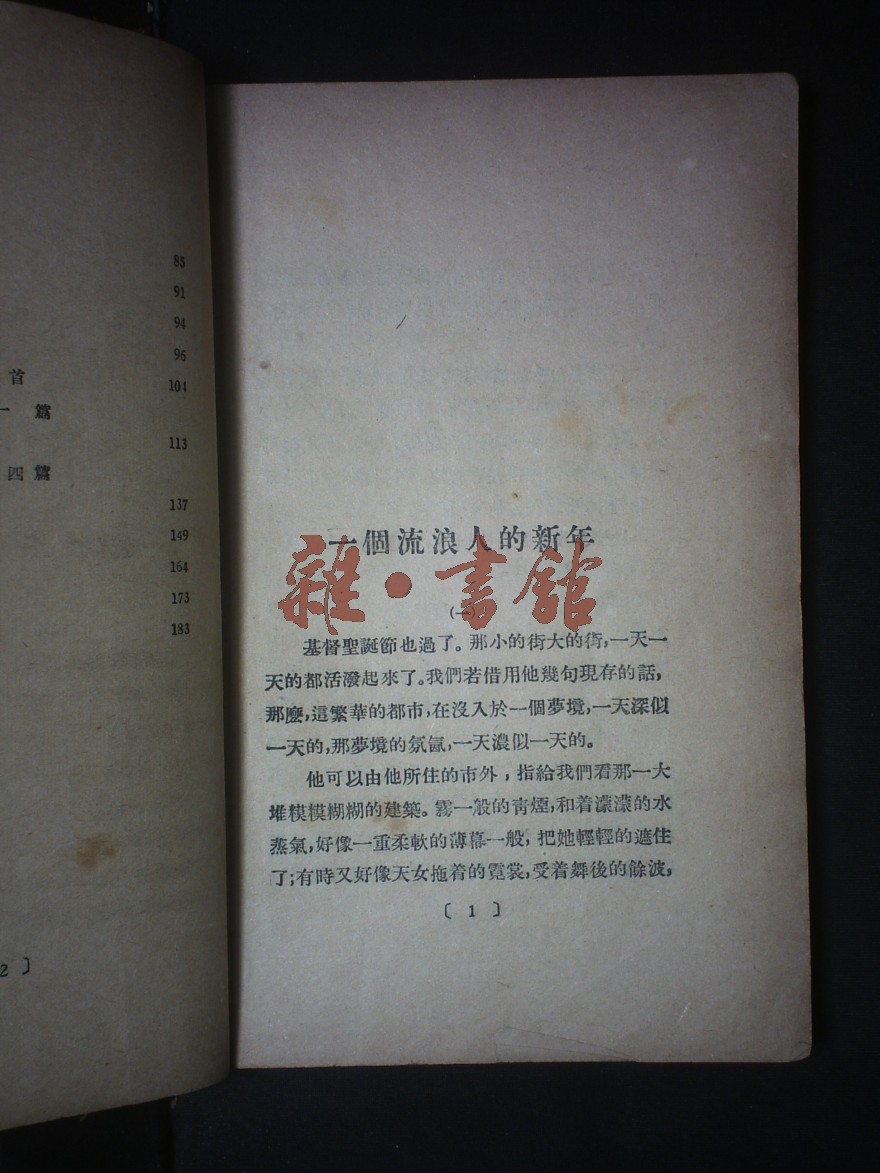 85
91
94
96
首 104
一篇
113
四篇
137
149
164
173
183
2 〕
一個流浪人的新年
雜·書館
(一)
基督聖誕節也過了。那小的街大的街,一天一
天的都活潑起來了。我們若借用他幾句現存的話,
那麼,這繁華的都市,在沒入於一個夢境,一天深似
一天的,那夢境的氛氳,一天濃似一天的。
他可以由他所住的市外,指給我們看那一大
堆模模糊糊的建築。霧一般的靑煙,和着濛濛的水
蒸氣,好像一重柔軟的薄幕一般,把她輕輕的遮住
了;有時又好像天女拖着的霓裳,受着舞後的餘波,
〔 1 〕